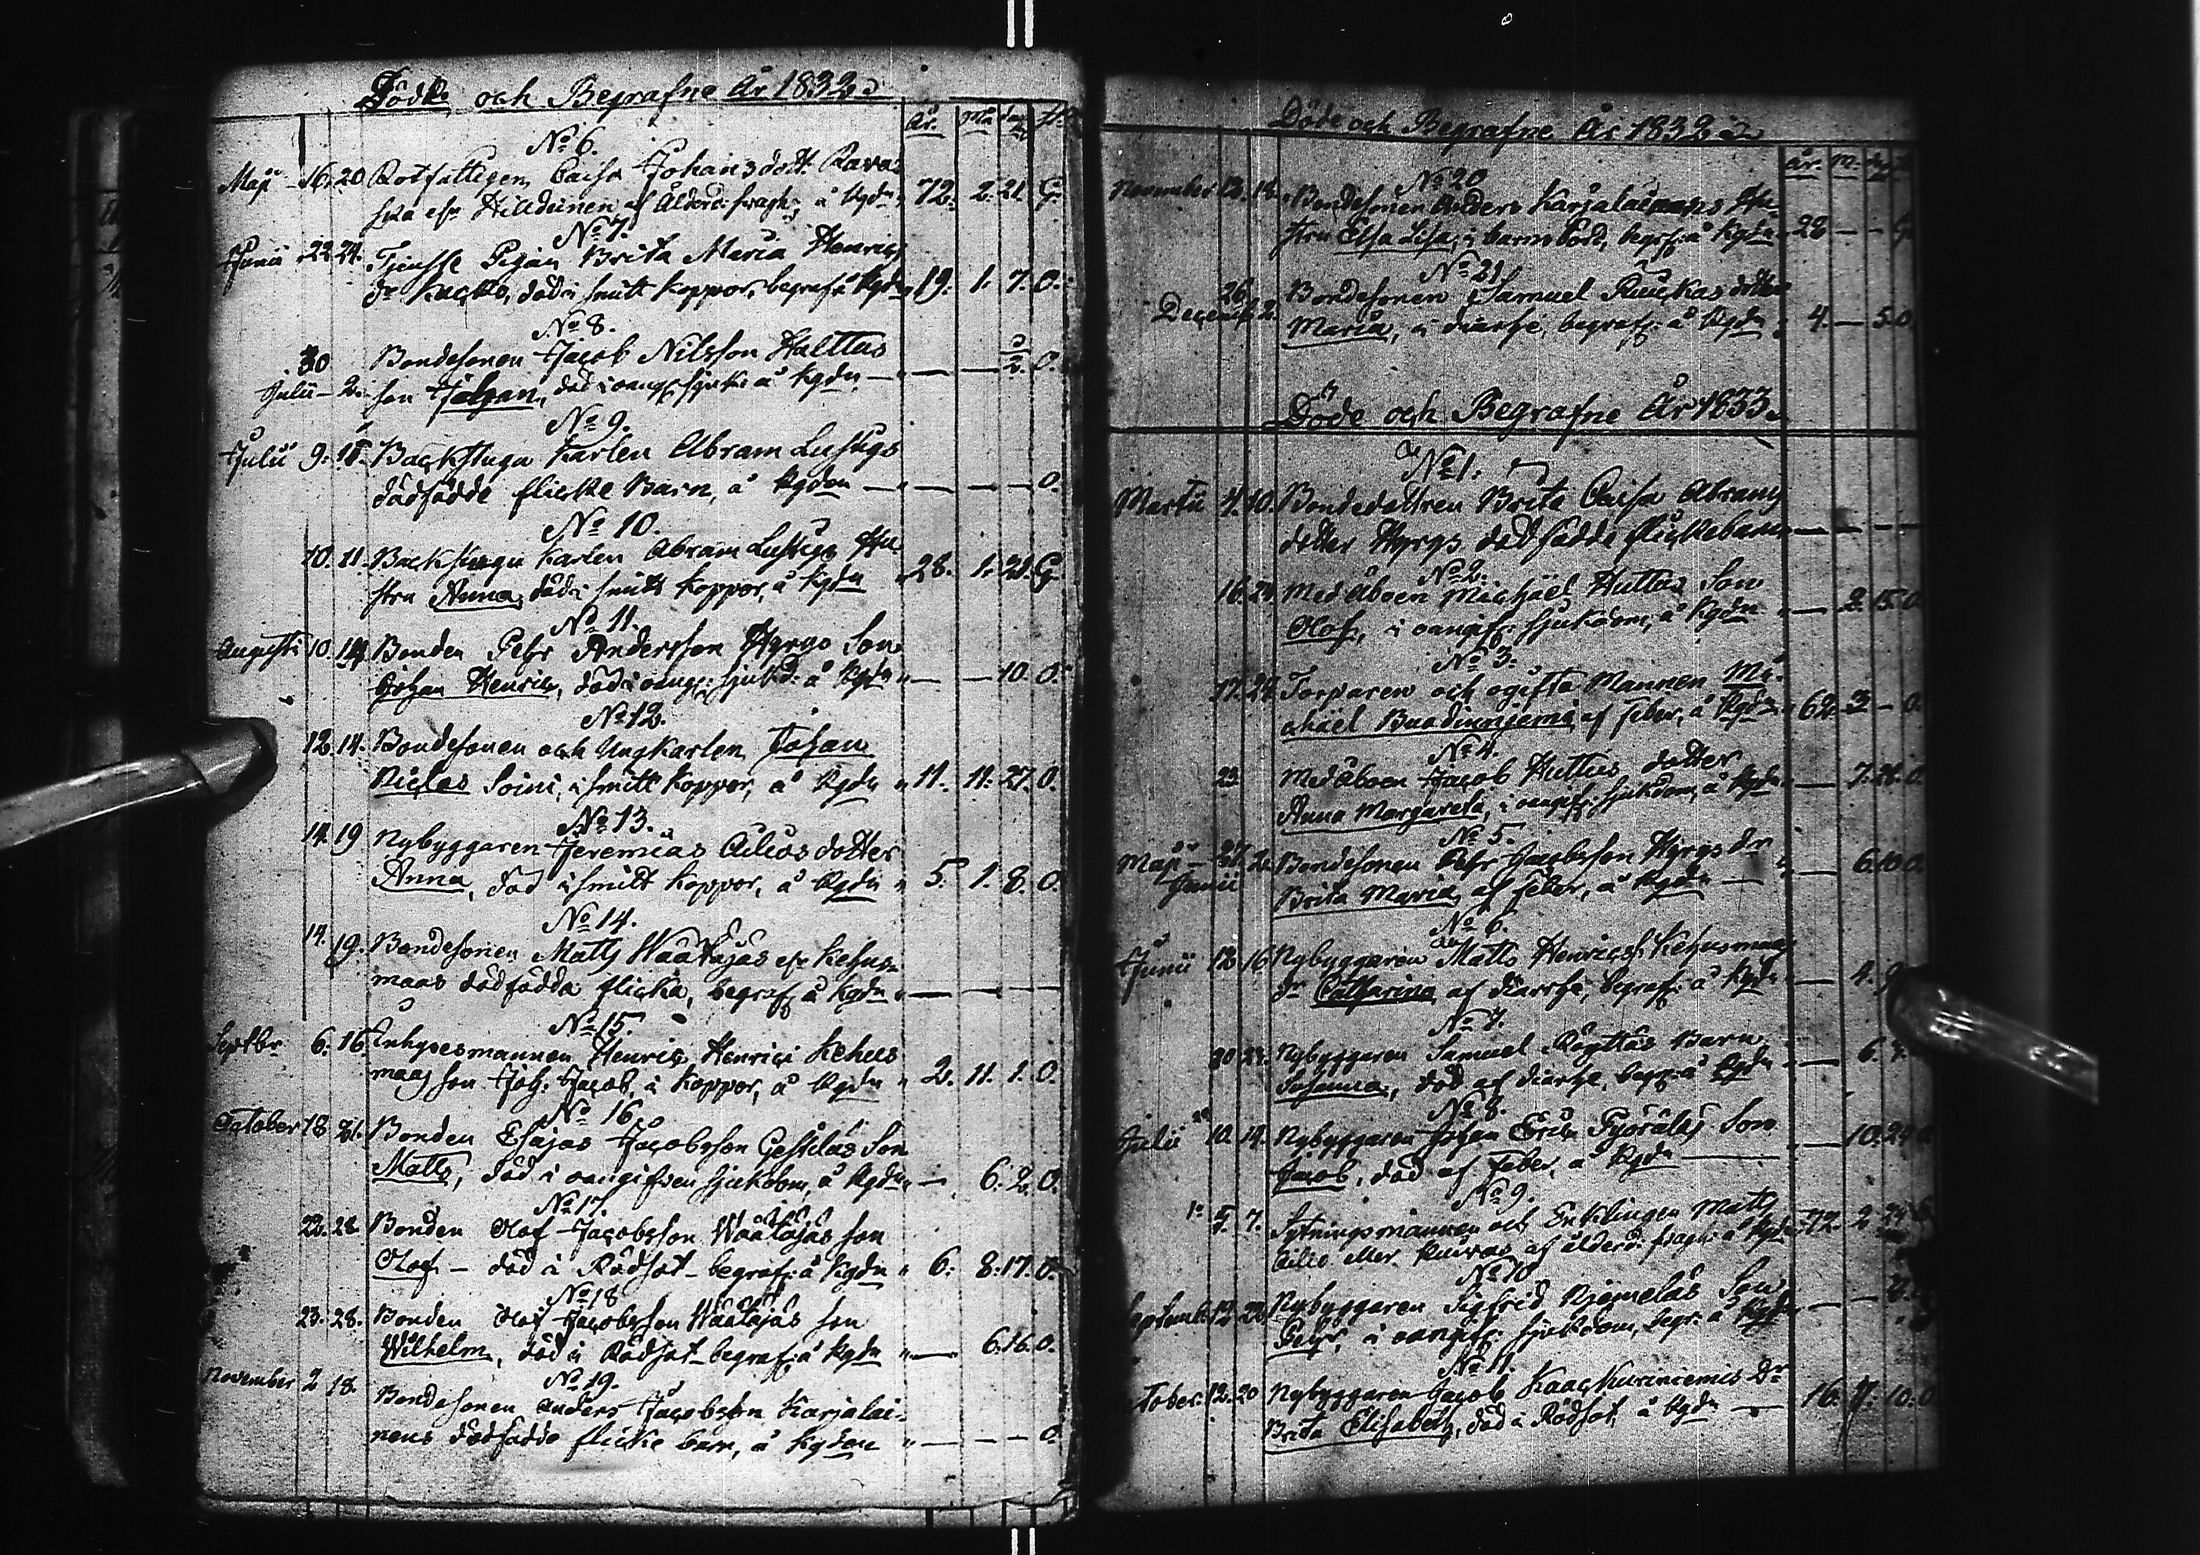 Döde och Begrafne År 1832
År. Må dag
No 6.
Maji 16. 20 Rotfattigen Caisa Johansdott. Ravas
ska Hilldeinen af Ålderd: å Kgdn 72. 2. 21. G.
No 7.
Junii 22 24. Pigan Brita Maria Henrics
dr död i smitt koppor, begrafs å Kgdn 19. 1. 7. O.
No 8.
30 Bondesonen Jacob Nilsson Halttus
Julii 2. son Johan, död i oangif sjuk: å Kgdn — — 2. O.
No 9.
Julii 9. 15. Backstugu Karlen Abram Lustigs
dödfödde flicke Barn, å Kgdn — — — O.
No 10.
10. 11. Backstugu Karlen Abram Lustigs Hu
stru Anna, död i smitt koppor, å Kgdn 28. 1. 21. G.
No 11.
Augusti 10. 14 Bonden Pehr Andersson Hyrys Son
Johan Henric, död i oangif: sjukd: å Kgdn — — 10. O.
No 12.
12. 14. Bondesonen och Ungkarlen Johan
Niclas Soini, i smitt koppor, å Kgdn 11. 11. 27. O.
No 13.
14. 19 Nybyggaren Jeremias dotter
Anna, död i smitt koppor, å Kgdn 5. 1. 8. O.
No 14.
14. 19. Bondesonen Matts Wäätäjäs Kehus=
maas dödfödda flicka, begraf: å Kgdn — — —
No 15.
Septbr 6. 16 Inhysesmannen Henric Henrici Kehus
maas son Joh: Jacob i koppor, å Kgdn 2. 11. 1. O.
No 16
October 18 21. Bonden Esajas Jacobsson Son
Matts, död i oangifven sjukdom, å Kgdn — 6. 2. O.
No 17.
22. 28 Bonden Olof Jacobsson Wäätäjäs son
Olof — död i Rödsot — begraf: å Kgdn 6. 8. 17. O.
No 18
23. 28. Bonden Olof Jacobsson Wäätäjäs son
Wilhelm, död i Rödsot — begraf: å Kgdn — 6. 16. O.
No 19.
November 2 18. Bondesonen Anders Jacobsson Karjalai=
nens dödfödde flicke barn, å Kgdn — — — O.
Döde och Begrafne År 1832
År. M.
No 20
November 12. 18. Bondesonen Anders Karjalainens Hu=
stru Elsa Lisa, i barnsbörd, begrf: å Kgdn 28 — — G.
No 21
26.
Decemb 2. Bondesonen Samuel dotter
Maria, i diarhé, begraf: å Kgdn 4. — 5. O.
Döde och Begrafne År 1833
No 1.
Martii 4. 10. Bondedottren Brita Caisa Abrams
dotter Hyrys dödfödde flickebarn — — —
No 2.
16. 24. Medåboen Michäel Huttus Son
Olof, i oangif: sjukdom, å Kgdn — 2. 15. O.
No 3.
17. 24. Torparen och ogifta Mannen Mi=
chäel af feber, å Kgdn 62. 3 — O.
No 4.
23. Medåboen Jacob Huttus dotter
Anna Margareta, i oangif: sjukdom, å Kgdn — 7. O.
No 5.
Maji 2. Bondesonen Pehr Jacobsson Hyrys dr
Junii Brita Maria af feber, å Kgdn — 6. O.
No 6.
Junii 12 16 Nybyggaren Matts Henricss. Kehusmaas
dr Catharina af diarrhé, begraf: å Kgdn — 4.
No 7.
20 Nybyggaren Samuel Barn
Johanna, död af diarhé, begr: å Kgdn — 6.
No 8.
Julii 10. 14. Nybyggaren Johan Eric Pyöräläs Son
Jacob, död af feber, å Kgdn — 10.
No 9.
5. 7. Sytningsmannen och Enklingen Matts
af ålderd: å Kgdn 72. 2
No 10
Septemb: Nybyggaren Sigfrid Njemeläs Son
Pehr, i oangif: sjukdom, begr: å Kgdn — —
No 11.
October. 12. 20 Nybyggaren Jacob Dr
Brita Elisabeth, död i Rödsot, å Kgdn — 16. 10. O